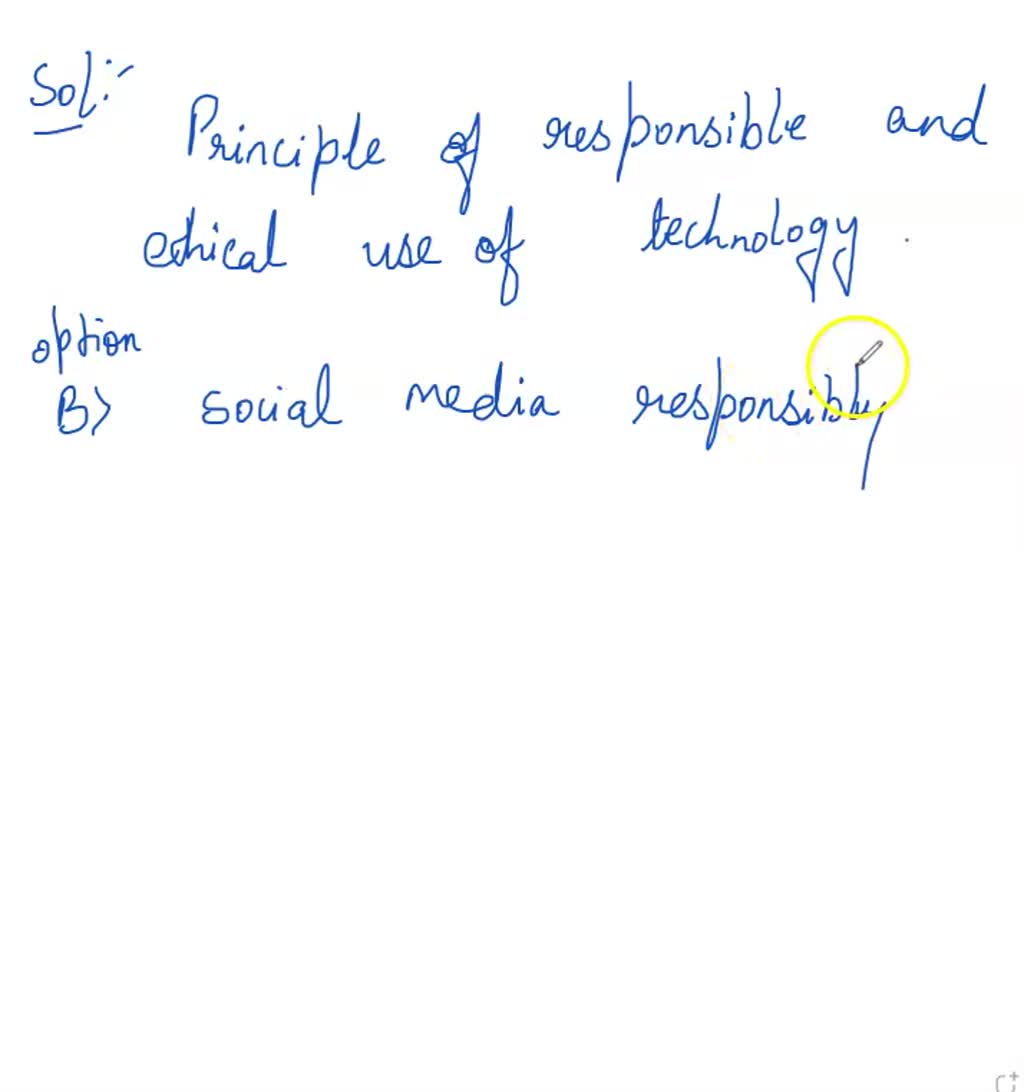 Sol:-
Principle of responsible and
ethical use of technology.
option
B> social media responsibly